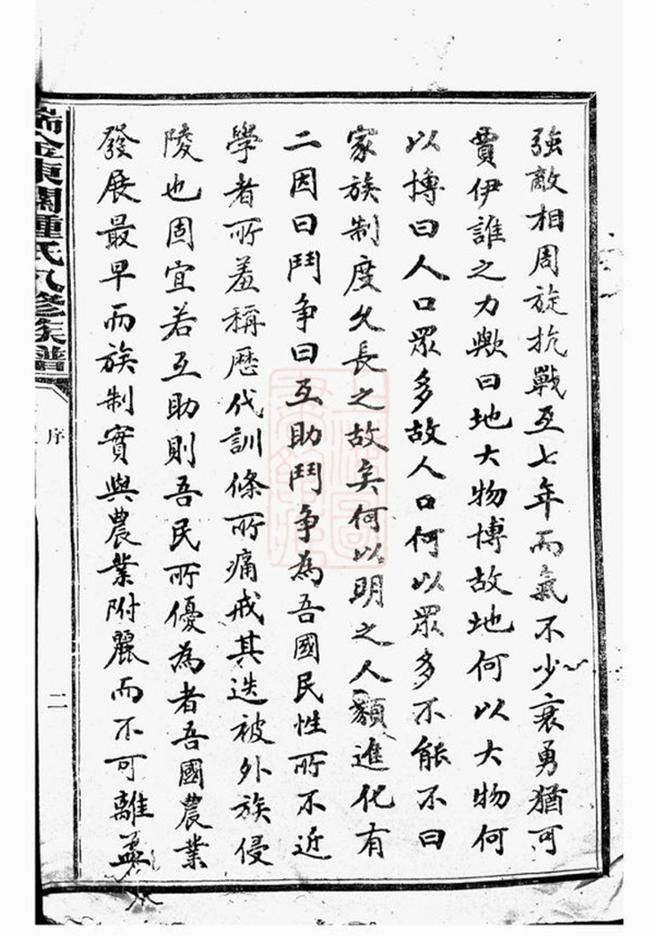 強敵相周旋抗戰互七年而氣不少衰勇猶可
賈伊誰之力歟曰地大物博故地何以大物何
以博曰人口眾多故人口何以眾多不能不曰
家族制度久長之故矣何以明之人類進化有
二因曰鬥爭曰互助鬥爭為吾國民性所不近
學者所羞稱歷代訓條所痛戒其迭被外族侵
陵也固宜若互助則吾民所優為者吾國農業
發展最早而族制實與農業附麗而不可離孟
瑞金東關鍾氏八修族譜
序
二